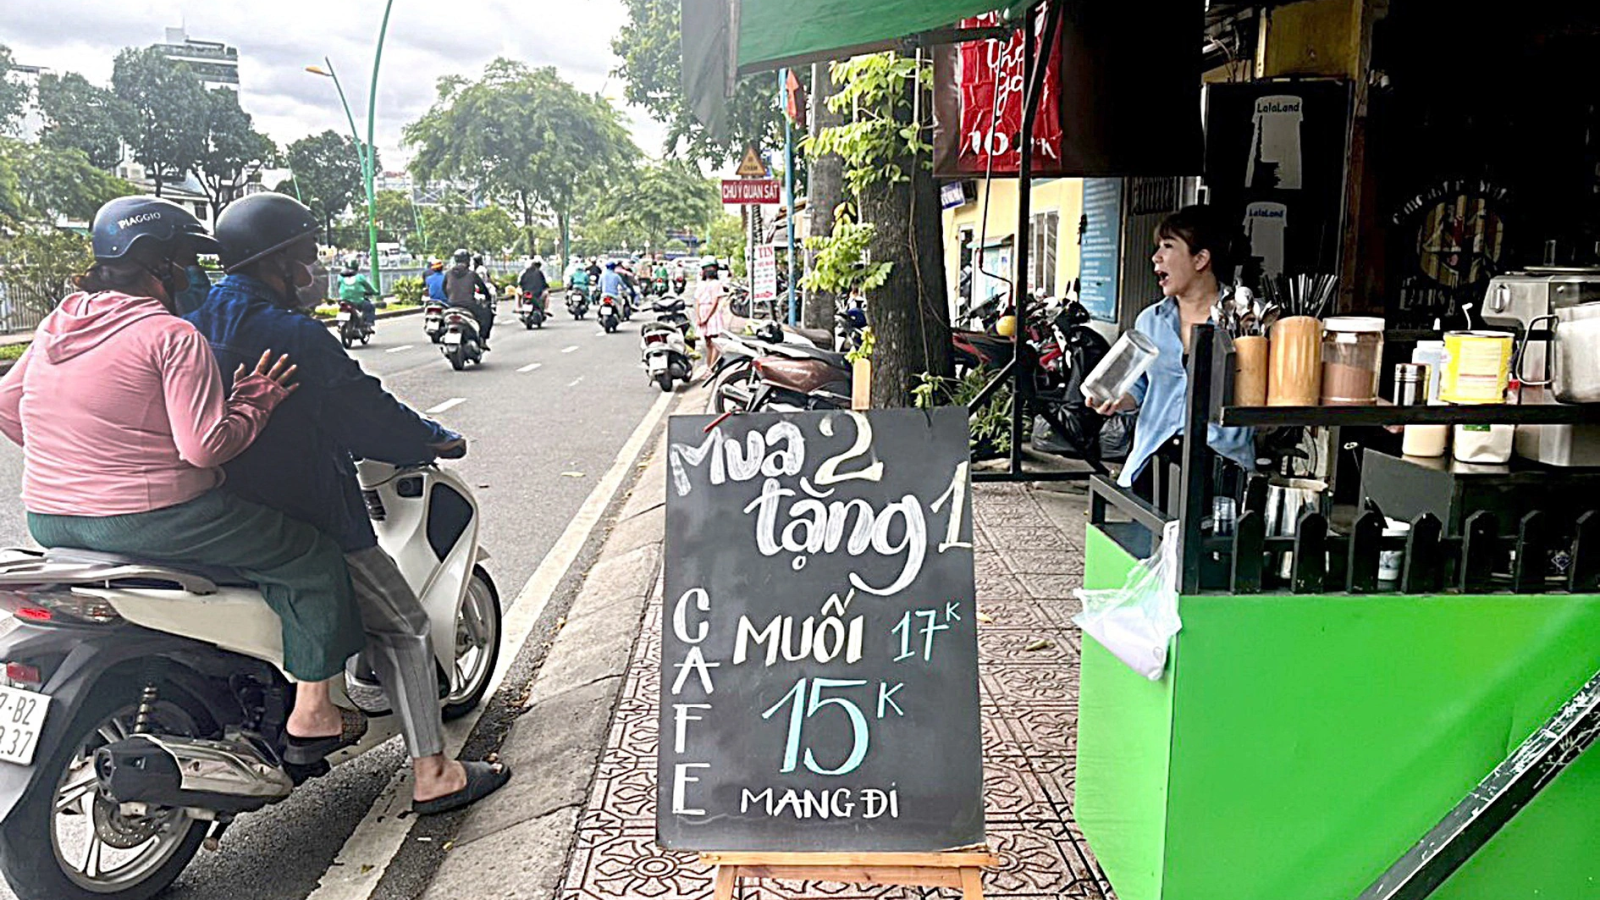 PIAGGIO
CHÚ Ý QUAN SÁT
LalaLand
LalaLand
Mua 2
tặng 1
CAFE
MUỐI 17K
15K
MANG ĐI